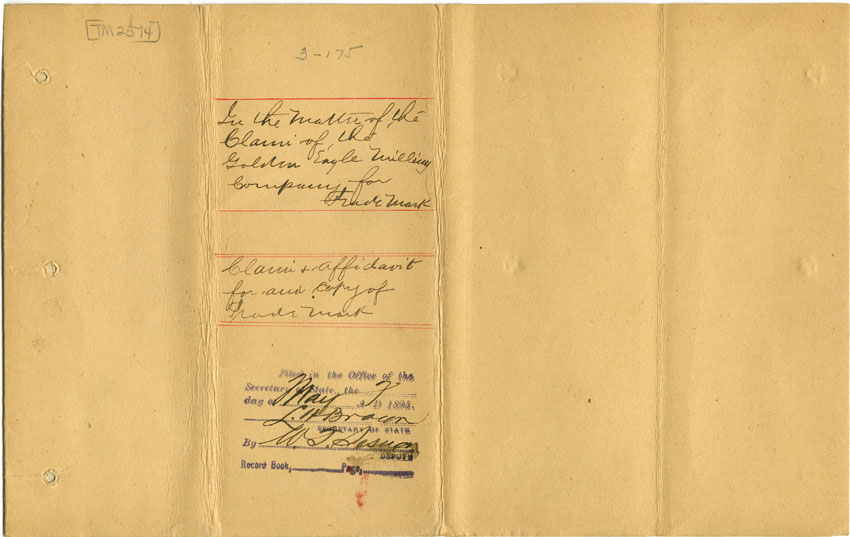 TM 2574
3-175
In the Matter of the
Claim of the
Golden Eagle Milling
Company for
Trade Mark
Claim & Affidavit
for and copy of
Trade Mark
Filed in the Office of the
Secretary of State, the
May 7
day of A D 1895.
L. H. Brown
SECRETARY OF STATE
By W. T.
DEPUTY
Record Book, Page,